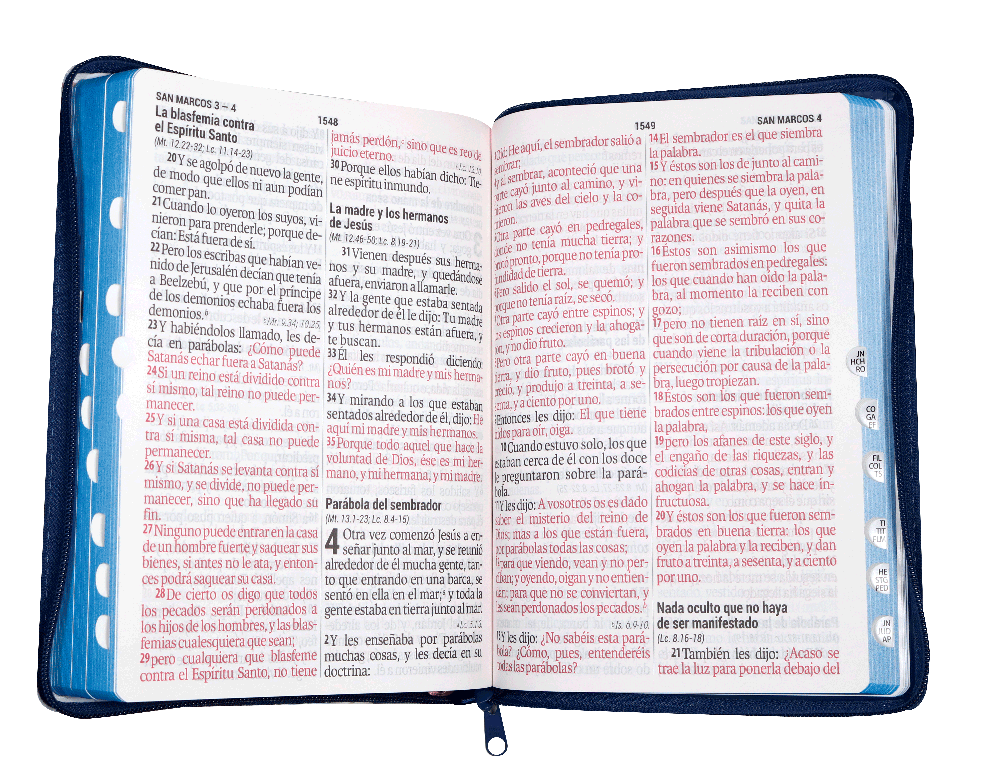 SAN MARCOS 3 – 4
1548
La blasfemia contra
el Espíritu Santo
(Mt. 12.22-32; Lc. 11.14-23)
20 Y se agolpó de nuevo la gente,
de modo que ellos ni aun podían
comer pan.
21 Cuando lo oyeron los suyos, vi-
nieron para prenderle; porque de-
cían: Está fuera de sí.
22 Pero los escribas que habían ve-
nido de Jerusalén decían que tenía
a Beelzebú, y que por el príncipe
de los demonios echaba fuera los
demonios.
Mt. 9.34; 10.25.
23 Y habiéndolos llamado, les de-
cía en parábolas: ¿Cómo puede
Satanás echar fuera a Satanás?
24 Si un reino está dividido contra
sí mismo, tal reino no puede per-
manecer.
25 Y si una casa está dividida con-
tra sí misma, tal casa no puede
permanecer.
26 Y si Satanás se levanta contra sí
mismo, y se divide, no puede per-
manecer, sino que ha llegado su
fin.
27 Ninguno puede entrar en la casa
de un hombre fuerte y saquear sus
bienes, si antes no le ata, y enton-
ces podrá saquear su casa.
28 De cierto os digo que todos
los pecados serán perdonados a
los hijos de los hombres, y las blas-
femias cualesquiera que sean;
29 pero cualquiera que blasfeme
contra el Espíritu Santo, no tiene
jamás perdón, sino que es reo de
juicio eterno.
30 Porque ellos habían dicho: Tie-
ne espíritu inmundo.
La madre y los hermanos
de Jesús
(Mt. 12.46-50; Lc. 8.19-21)
31 Vienen después sus herma-
nos y su madre, y quedándose
afuera, enviaron a llamarle.
32 Y la gente que estaba sentada
alrededor de él le dijo: Tu madre
y tus hermanos están afuera, y
te buscan.
33 Él les respondió diciendo:
¿Quién es mi madre y mis herma-
nos?
34 Y mirando a los que estaban
sentados alrededor de él, dijo: He
aquí mi madre y mis hermanos.
35 Porque todo aquel que hace la
voluntad de Dios, ése es mi her-
mano, y mi hermana, y mi madre.
Parábola del sembrador
(Mt. 13.1-23; Lc. 8.4-15)
4 Otra vez comenzó Jesús a en-
señar junto al mar, y se reunió
alrededor de él mucha gente, tan-
to que entrando en una barca, se
sentó en ella en el mar; y toda la
gente estaba en tierra junto al mar.
2 Y les enseñaba por parábolas
muchas cosas, y les decía en su
doctrina:
1549
SAN MARCOS 4
He aquí, el sembrador salió a
sembrar, aconteció que una
parte cayó junto al camino, y vi-
las aves del cielo y la co-
Otra parte cayó en pedregales,
donde no tenía mucha tierra; y
pronto, porque no tenía pro-
fundidad de tierra.
Pero salido el sol, se quemó; y
porque no tenía raíz, se secó.
Otra parte cayó entre espinos; y
los espinos crecieron y la ahoga-
y no dio fruto.
Pero otra parte cayó en buena
tierra, y dio fruto, pues brotó y
creció, y produjo a treinta, a se-
y a ciento por uno.
Entonces les dijo: El que tiene
oídos para oír, oiga.
10 Cuando estuvo solo, los que
estaban cerca de él con los doce
le preguntaron sobre la pará-
bola.
Y les dijo: A vosotros os es dado
saber el misterio del reino de
Dios; mas a los que están fuera,
por parábolas todas las cosas;
para que viendo, vean y no per-
y oyendo, oigan y no entien-
para que no se conviertan, y
les sean perdonados los pecados.
Is. 6.9-10.
Y les dijo: ¿No sabéis esta pará-
bola? ¿Cómo, pues, entenderéis
todas las parábolas?
14 El sembrador es el que siembra
la palabra.
15 Y éstos son los de junto al cami-
no: en quienes se siembra la pala-
bra, pero después que la oyen, en
seguida viene Satanás, y quita la
palabra que se sembró en sus co-
razones.
16 Éstos son asimismo los que
fueron sembrados en pedregales:
los que cuando han oído la pala-
bra, al momento la reciben con
gozo;
17 pero no tienen raíz en sí, sino
que son de corta duración, porque
cuando viene la tribulación o la
persecución por causa de la pala-
bra, luego tropiezan.
18 Éstos son los que fueron sem-
brados entre espinos: los que oyen
la palabra,
19 pero los afanes de este siglo, y
el engaño de las riquezas, y las
codicias de otras cosas, entran y
ahogan la palabra, y se hace in-
fructuosa.
20 Y éstos son los que fueron sem-
brados en buena tierra: los que
oyen la palabra y la reciben, y dan
fruto a treinta, a sesenta, y a ciento
por uno.
Nada oculto que no haya
de ser manifestado
(Lc. 8.16-18)
21 También les dijo: ¿Acaso se
trae la luz para ponerla debajo del
JN
HCH
RO
CO
GA
EF
FIL
COL
TS
TI
TIT
FLM
HE
STG
PED
JN
JUD
AP